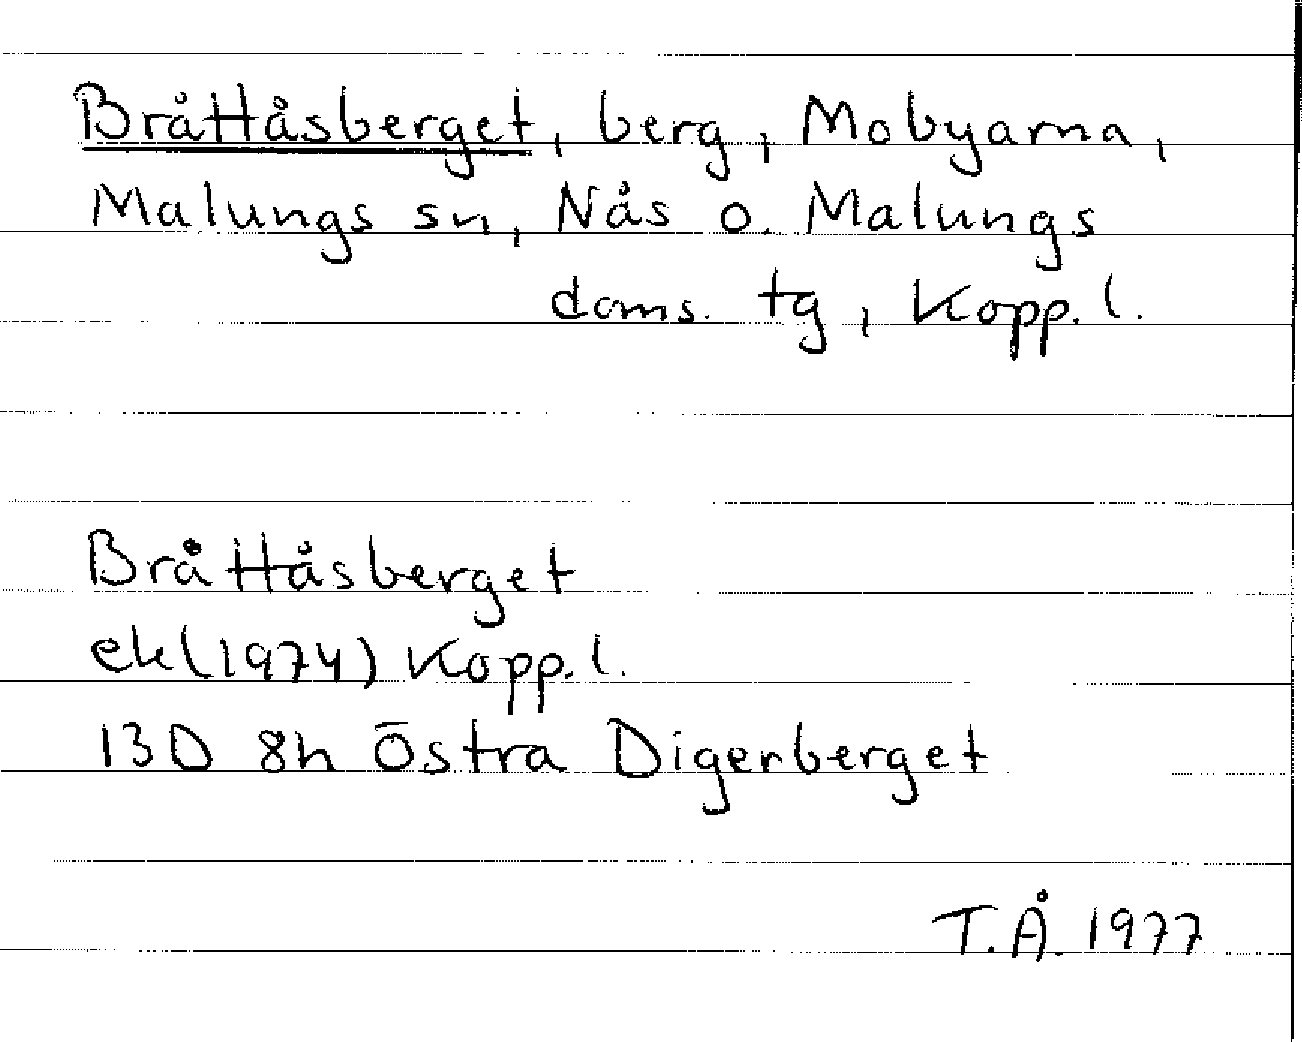 Bråttåsberget, berg, Mobyarna,
Malungs sn, Nås o. Malungs
doms. tg, Kopp. l.
Bråttåsberget
ek(1974) Kopp. l.
13D 8h Östra Digerberget
T.Å. 1977